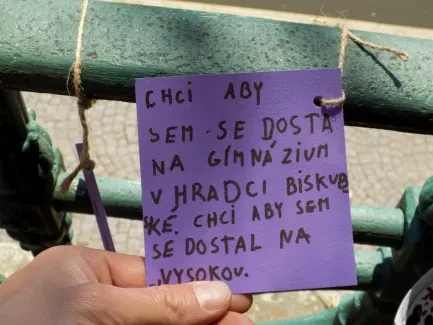 CHCI ABY
SEM SE DOSTA
NA GIMNÁZIUM
V HRADCI BISKUB
SKÉ. CHCI ABY SEM
SE DOSTAL NA
VYSOKOU.